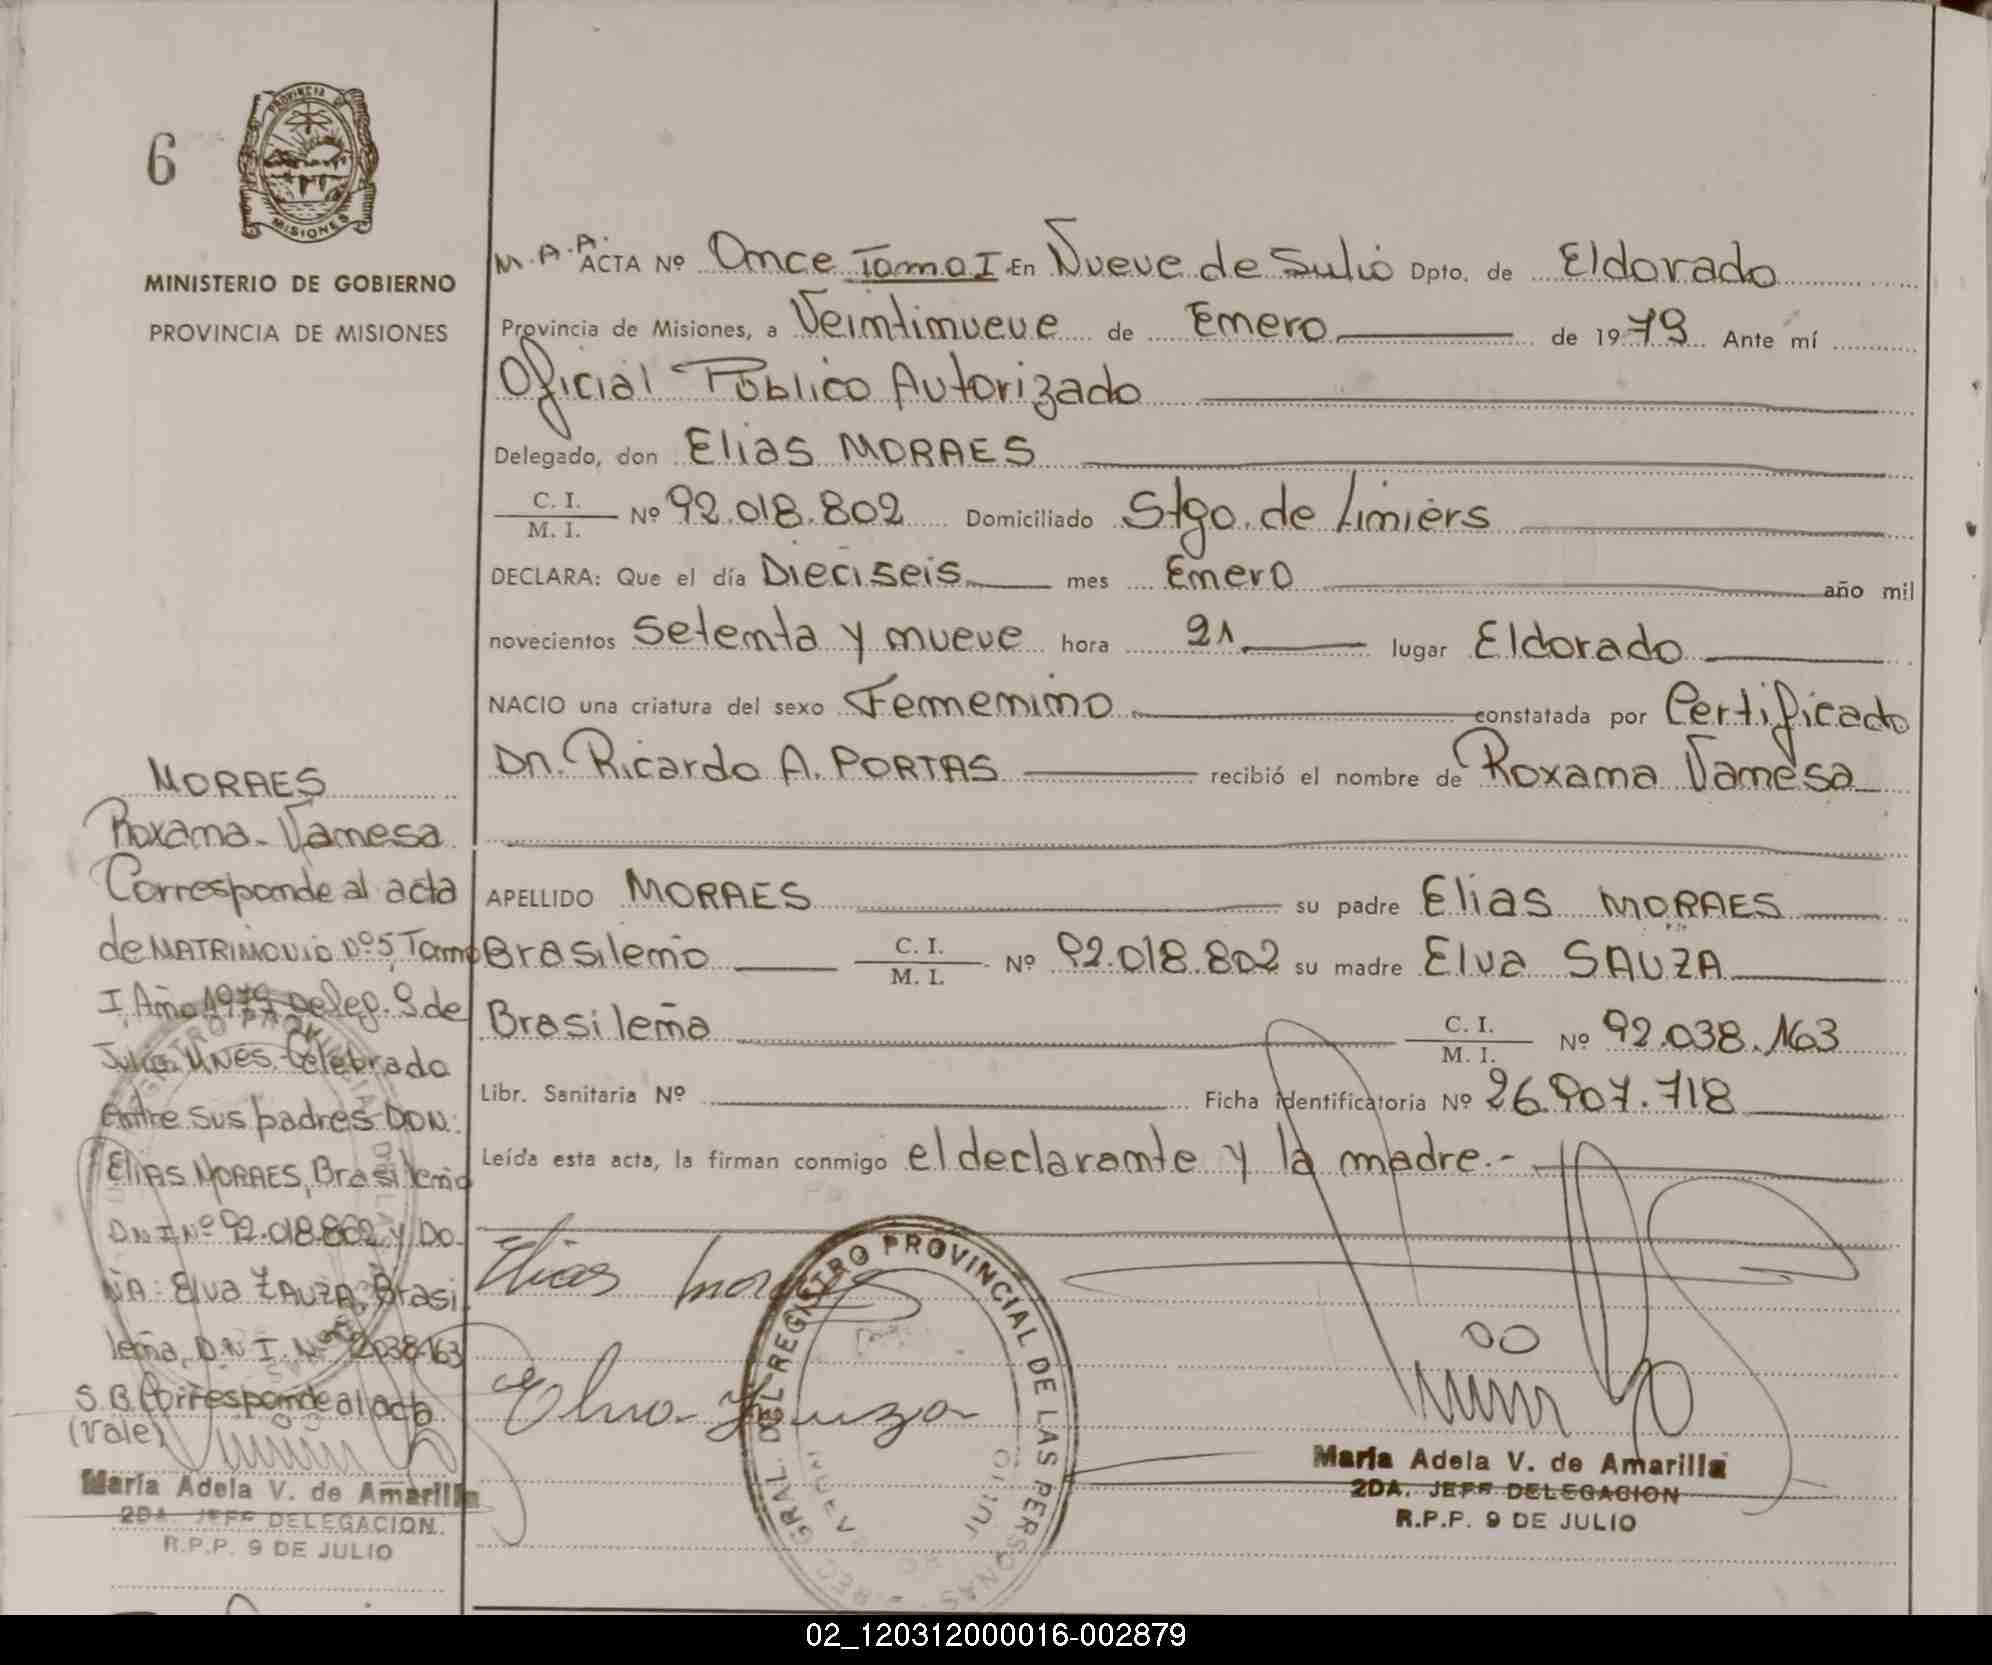 6
PROVINCIA DE
MISIONES
MINISTERIO DE GOBIERNO
PROVINCIA DE MISIONES
M.A.A. ACTA Nº Once Tomo I En Nueve de Julio Dpto. de Eldorado
Provincia de Misiones, a Veintinueve de Enero de 1979 Ante mí
Oficial Público Autorizado
Delegado, don Elias MORAES
C. I.
M. I. Nº 92.018.802 Domiciliado Stgo. de Limiers
DECLARA: Que el día Dieciseis mes Enero año mil
novecientos Setenta y nueve hora 21 lugar Eldorado
NACIO una criatura del sexo Femenino constatada por Certificado
Dn. Ricardo A. PORTAS recibió el nombre de Roxana Vanesa
APELLIDO MORAES su padre Elias MORAES
Brasileño C. I.
M. I. Nº 92.018.802 su madre Elva SAUZA
Brasileña C. I.
M. I. Nº 92.038.163
Libr. Sanitaria Nº Ficha identificatoria Nº 26.907.718
Leída esta acta, la firman conmigo el declarante y la madre.-
MORAES
Roxana Vanesa
Corresponde al acta
de MATRIMONIO Nº 5, Tomo
I, Año 1979 Deleg. 9 de
Julio MNES. Celebrado
Entre sus padres DON:
Elias MORAES, Brasileño
DNI Nº 92.018.802 Y DO-
ÑA: Elva ZAUZA, Brasi
leña, D.N.I. Nº 92038163
S.B. Corresponde al acta.
(Vale)
María Adela V. de Amarilla
2DA. JEFE DELEGACION
R.P.P. 9 DE JULIO
Elias Moraes
Elva Zauza
GRAL. DEL REGISTRO PROVINCIAL DE LAS PERSONAS
María Adela V. de Amarilla
2DA. JEFE DELEGACION
R.P.P. 9 DE JULIO
02_120312000016-002879